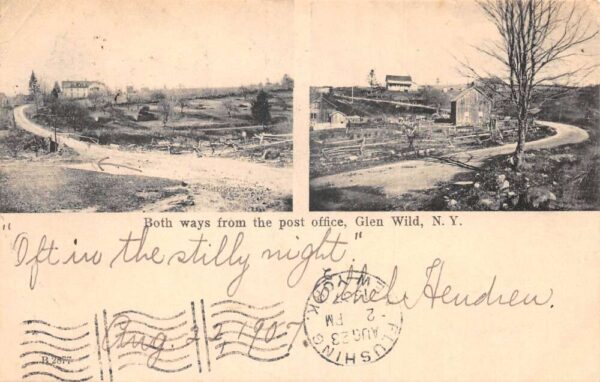 Both ways from the post office, Glen Wild, N. Y.
"Oft in the stilly night."
Ethel Hendren.
Aug. 22 1907
B 2677
FLUSHING
AUG 23
2 PM